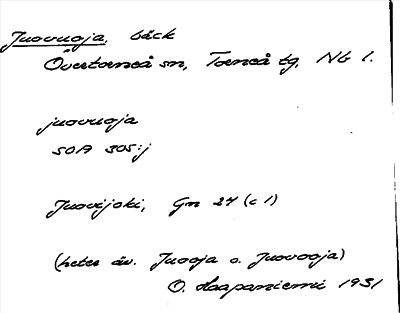 Juovuoja, bäck
Övertorneå sn, Torneå tg, Nb l.
juovuoja
SOA 305:j
Juovijoki, Gn 24 (c 1)
(heter äv. Juoja o. Juovooja)
O. Haapaniemi 1931